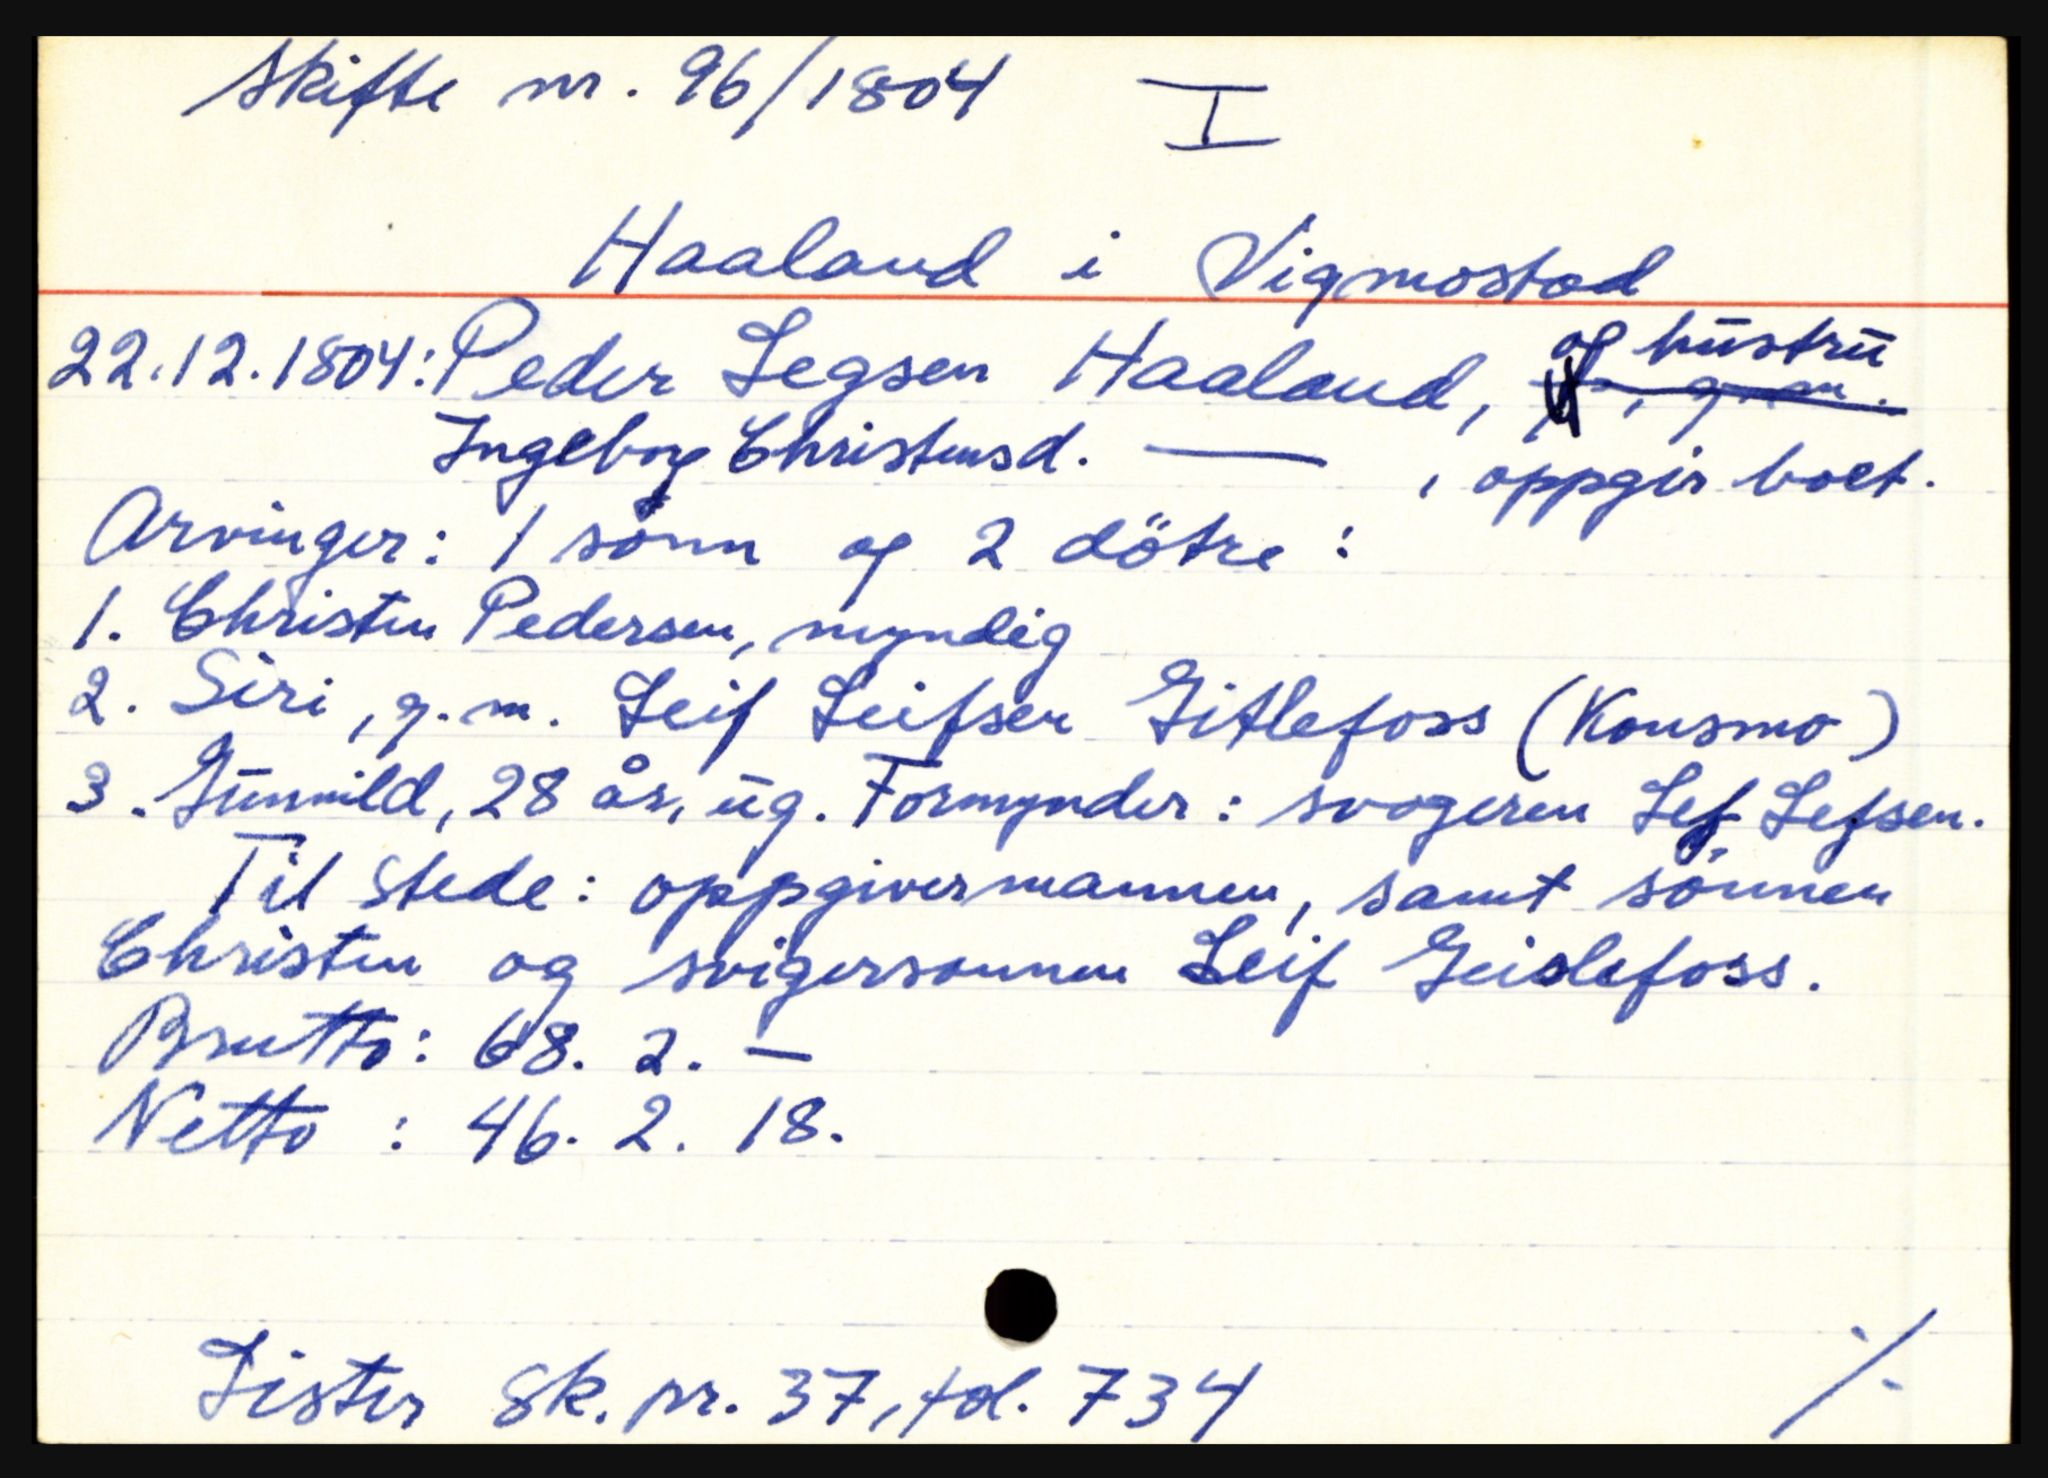 Skifte nr. 96/1804 I
Haaland i Vigmostad
22.12.1804: Peder Legsen Haaland, og hustru
Ingeborg Christensd. — , oppgir boet.
Arvinger: 1 sönn og 2 dötre:
1. Christen Pedersen, myndig
2. Siri, g.m. Leif Leifsen Gitlefoss (Konsmo)
3. Gunnild, 28 år, ug. Formynder: svogeren Lef Lefsen.
Til stede: oppgivermannen, samt sönnen
Christen og svigersonnen Leif Geislefoss.
Brutto: 68. 2. —
Netto: 46. 2. 18.
Lister sk. pr. 37, fol. 734
·/·